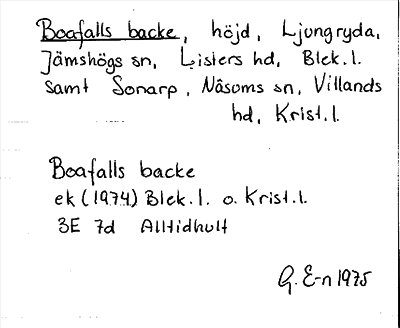 Boafalls backe, höjd, Ljungryda,
Jämshögs sn, Listers hd, Blek.l.
samt Sonarp, Näsums sn, Villands
hd, Krist.l.
Boafalls backe
ek (1974) Blek.l. o. Krist.l.
3E 7d Alltidhult
G. E-n 1975